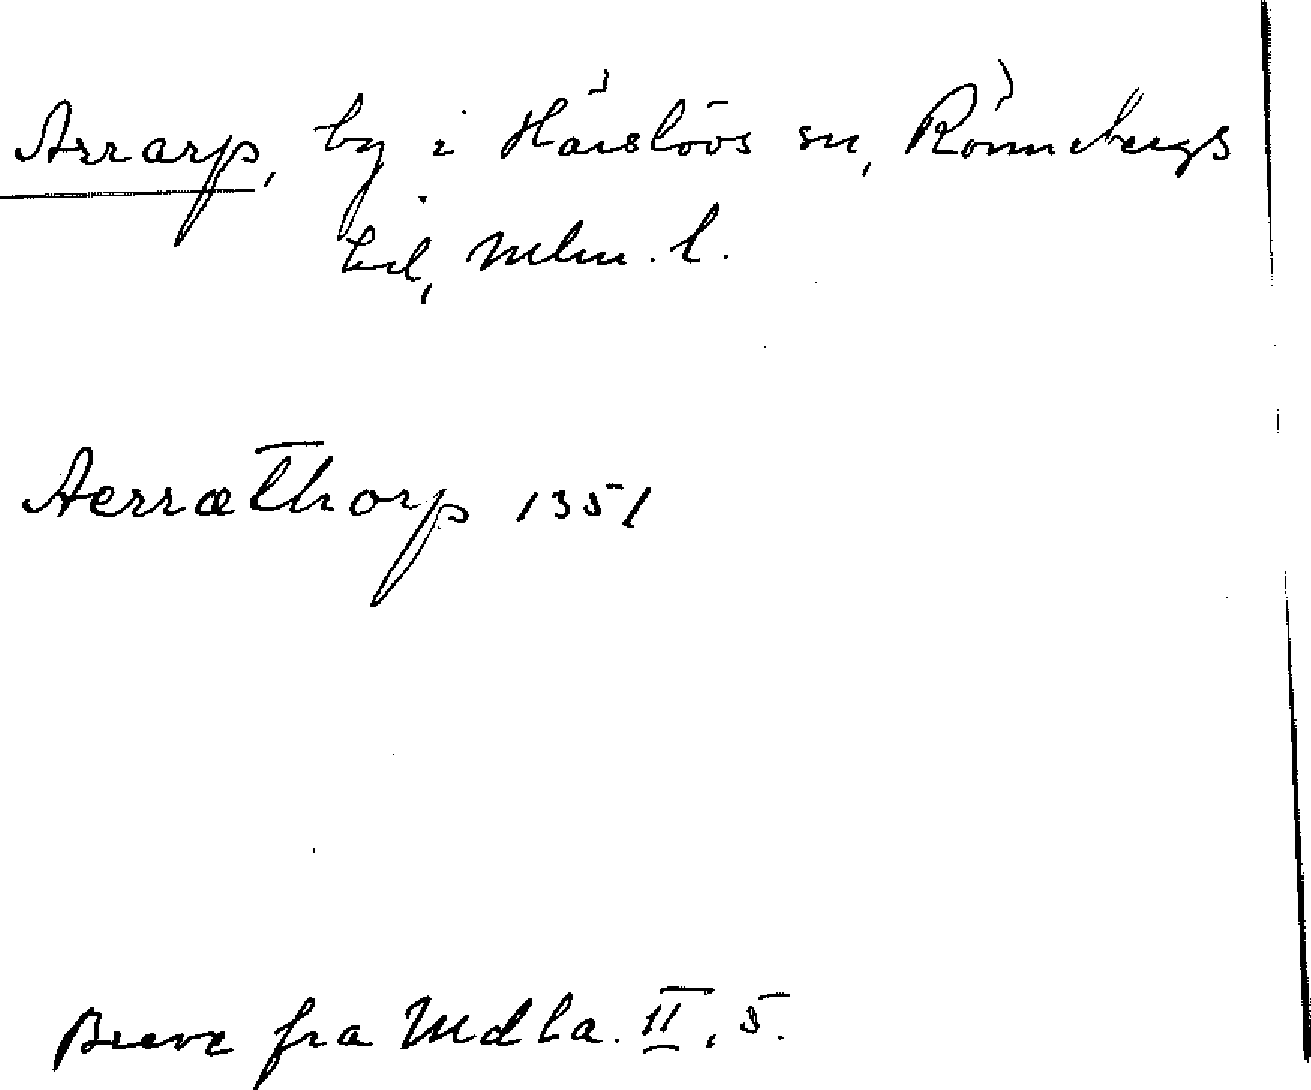 Arrarp, by i Härslövs sn, Rönnebergs
hd, Mlm. l.
AerræThorp 1351
Breve fra Mdla. II, 5.